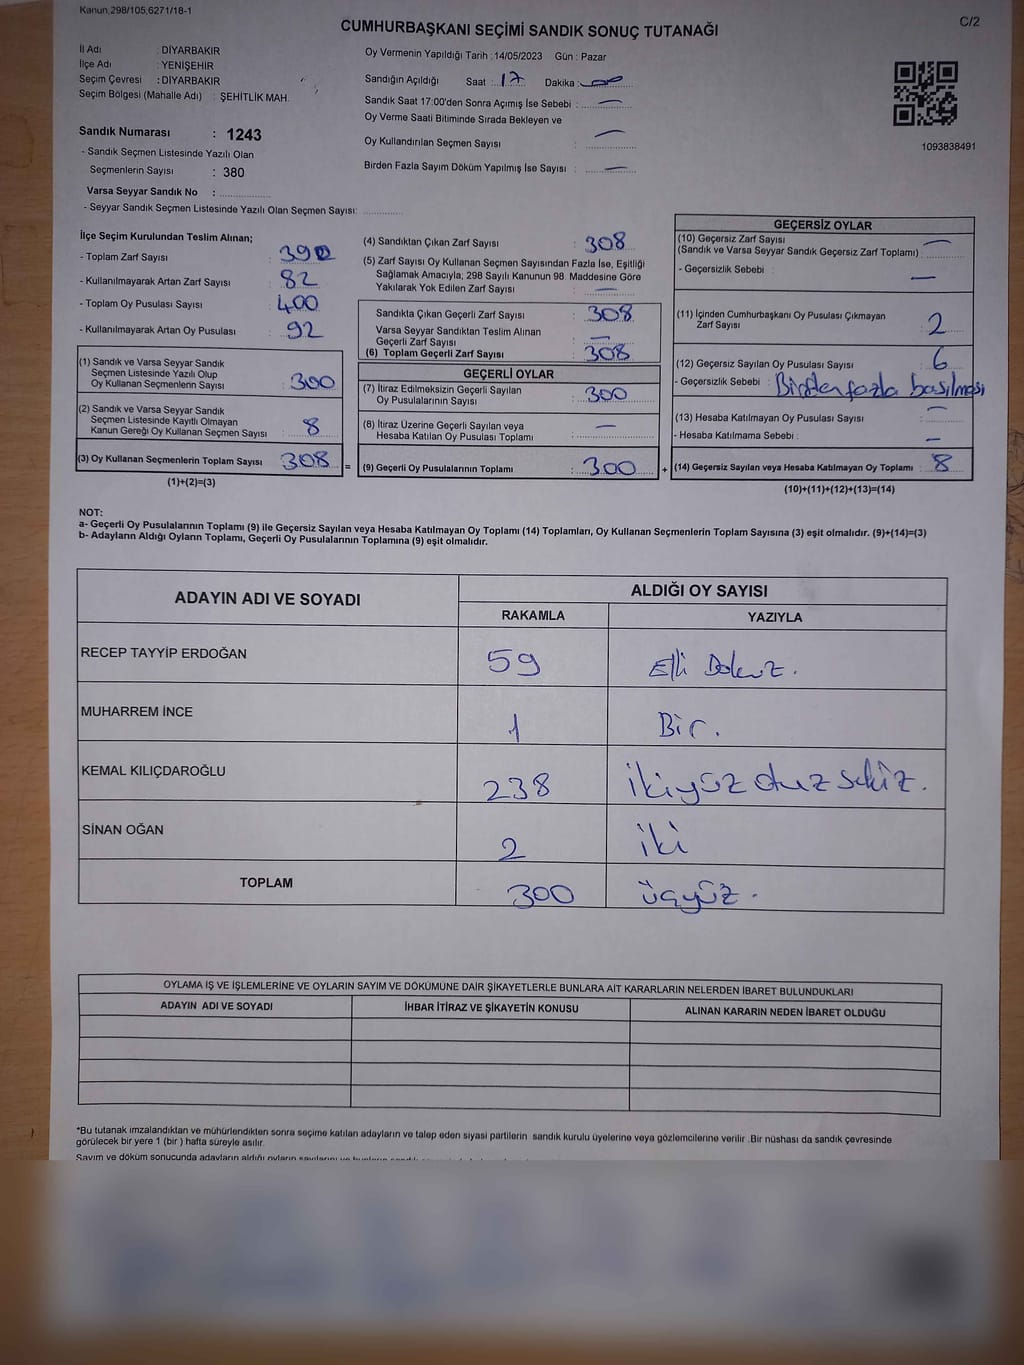 Kanun,298/105,6271/18-1
C/2
CUMHURBAŞKANI SEÇİMİ SANDIK SONUÇ TUTANAĞI
İl Adı : DİYARBAKIR
İlçe Adı : YENİŞEHİR
Seçim Çevresi : DİYARBAKIR
Seçim Bölgesi (Mahalle Adı) : ŞEHİTLİK MAH.
Sandık Numarası : 1243
- Sandık Seçmen Listesinde Yazılı Olan
Seçmenlerin Sayısı : 380
Varsa Seyyar Sandık No :
- Seyyar Sandık Seçmen Listesinde Yazılı Olan Seçmen Sayısı:
Oy Vermenin Yapıldığı Tarih : 14/05/2023 Gün : Pazar
Sandığın Açıldığı Saat : 17 Dakika : 00
Sandık Saat 17:00'den Sonra Açımış İse Sebebi : —
Oy Verme Saati Bitiminde Sırada Bekleyen ve
Oy Kullandırılan Seçmen Sayısı : —
Birden Fazla Sayım Döküm Yapılmış İse Sayısı : —
1093838491
İlçe Seçim Kurulundan Teslim Alınan;
- Toplam Zarf Sayısı : 390
- Kullanılmayarak Artan Zarf Sayısı : 82
- Toplam Oy Pusulası Sayısı : 400
- Kullanılmayarak Artan Oy Pusulası : 92
(1) Sandık ve Varsa Seyyar Sandık
Seçmen Listesinde Yazılı Olup
Oy Kullanan Seçmenlerin Sayısı : 300
(2) Sandık ve Varsa Seyyar Sandık
Seçmen Listesinde Kayıtlı Olmayan
Kanun Gereği Oy Kullanan Seçmen Sayısı : 8
(3) Oy Kullanan Seçmenlerin Toplam Sayısı : 308 =
(1)+(2)=(3)
(4) Sandıktan Çıkan Zarf Sayısı : 308
(5) Zarf Sayısı Oy Kullanan Seçmen Sayısından Fazla İse, Eşitliği
Sağlamak Amacıyla, 298 Sayılı Kanunun 98. Maddesine Göre
Yakılarak Yok Edilen Zarf Sayısı : —
Sandıkta Çıkan Geçerli Zarf Sayısı : 308
Varsa Seyyar Sandıktan Teslim Alınan
Geçerli Zarf Sayısı : —
(6) Toplam Geçerli Zarf Sayısı : 308
GEÇERLİ OYLAR
(7) İtiraz Edilmeksizin Geçerli Sayılan
Oy Pusulalarının Sayısı : 300
(8) İtiraz Üzerine Geçerli Sayılan veya
Hesaba Katılan Oy Pusulası Toplamı : —
(9) Geçerli Oy Pusulalarının Toplamı : 300 +
GEÇERSİZ OYLAR
(10) Geçersiz Zarf Sayısı : —
(Sandık ve Varsa Seyyar Sandık Geçersiz Zarf Toplamı)
- Geçersizlik Sebebi : —
(11) İçinden Cumhurbaşkanı Oy Pusulası Çıkmayan
Zarf Sayısı : 2
(12) Geçersiz Sayılan Oy Pusulası Sayısı : 6
- Geçersizlik Sebebi : Birden fazla basılması
(13) Hesaba Katılmayan Oy Pusulası Sayısı : —
- Hesaba Katılmama Sebebi : —
(14) Geçersiz Sayılan veya Hesaba Katılmayan Oy Toplamı : 8
(10)+(11)+(12)+(13)=(14)
NOT:
a- Geçerli Oy Pusulalarının Toplamı (9) ile Geçersiz Sayılan veya Hesaba Katılmayan Oy Toplamı (14) Toplamları, Oy Kullanan Seçmenlerin Toplam Sayısına (3) eşit olmalıdır. (9)+(14)=(3)
b- Adayların Aldığı Oyların Toplamı, Geçerli Oy Pusulalarının Toplamına (9) eşit olmalıdır.
ADAYIN ADI VE SOYADI ALDIĞI OY SAYISI
RAKAMLA YAZIYLA
RECEP TAYYİP ERDOĞAN 59 Elli Dokuz.
MUHARREM İNCE 1 Bir.
KEMAL KILIÇDAROĞLU 238 ikiyüz otuz sekiz.
SİNAN OĞAN 2 iki
TOPLAM 300 üçyüz.
OYLAMA İŞ VE İŞLEMLERİNE VE OYLARIN SAYIM VE DÖKÜMÜNE DAİR ŞİKAYETLERLE BUNLARA AİT KARARLARIN NELERDEN İBARET BULUNDUKLARI
ADAYIN ADI VE SOYADI İHBAR İTİRAZ VE ŞİKAYETİN KONUSU ALINAN KARARIN NEDEN İBARET OLDUĞU
*Bu tutanak imzalandıktan ve mühürlendikten sonra seçime katılan adayların ve talep eden siyasi partilerin sandık kurulu üyelerine veya gözlemcilerine verilir .Bir nüshası da sandık çevresinde
görülecek bir yere 1 (bir ) hafta süreyle asılır.
Sayım ve döküm sonucunda adayların aldığı oyların